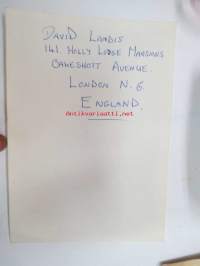 DAVID LANDIS
141. HOLLY LODGE MANSIONS
OAKESHOTT AVENUE.
LONDON N. 6.
ENGLAND.
antikvariat.net